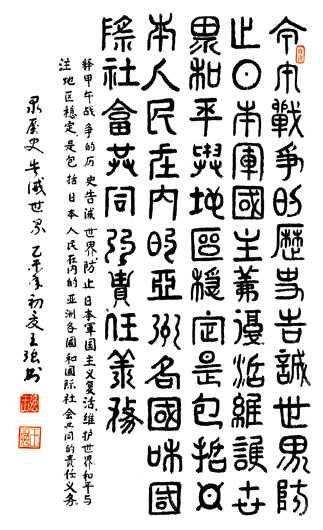 甲午戰爭的歷史告誡世界防
止日本軍國主義復活維護世
界和平與地區穩定是包括日
本人民在內的亞洲各國和國
際社會共同的責任義務
释甲午战争的历史告诫世界防止日本軍国主义复活,维护世界和平与
注地区稳定,是包括日本人民在内的亚洲各國和国际社会共同的责任义务。
录历史告诫世界 乙未年初夏王强书